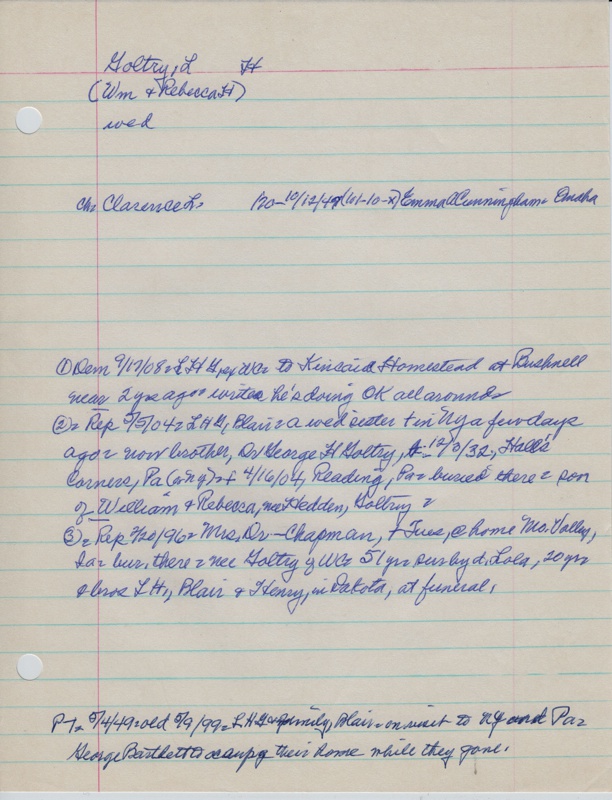 Goltry, L H
(Wm & Rebecca H)
wed
ch= Clarence L= /20-10/12/47 (101-10-X) Emma Cunningham= Omaha
① Dem 9/17/08= L H G, WC= to Kincaid Homestead at Bushnell
near 2 yrs ago= writes he's doing OK all around=
②= Rep 5/5/04= L H G, Blair= a wed sister + in Ny a few days
ago= now brother, Dr George H Goltry, 12/3/32, Hall's
Corners, Pa (or Ny)= + 4/16/04, Reading, Pa= buried there= son
of William & Rebecca, nee Hedden, Goltry =
③= Rep 2/20/96= Mrs. Dr- Chapman, + Tues, @ home Mo. Valley,
Ia= bur. there= nee Goltry of WC= 51 yrs sur by d. Lola, 20 yrs
& bros L H., Blair & Henry, in Dakota, at funeral.
PT= 5/4/49= old 5/9/99= L H G & family, Blair= on visit to Ny and Pa=
George Bartlett to occupy their home while they gone.